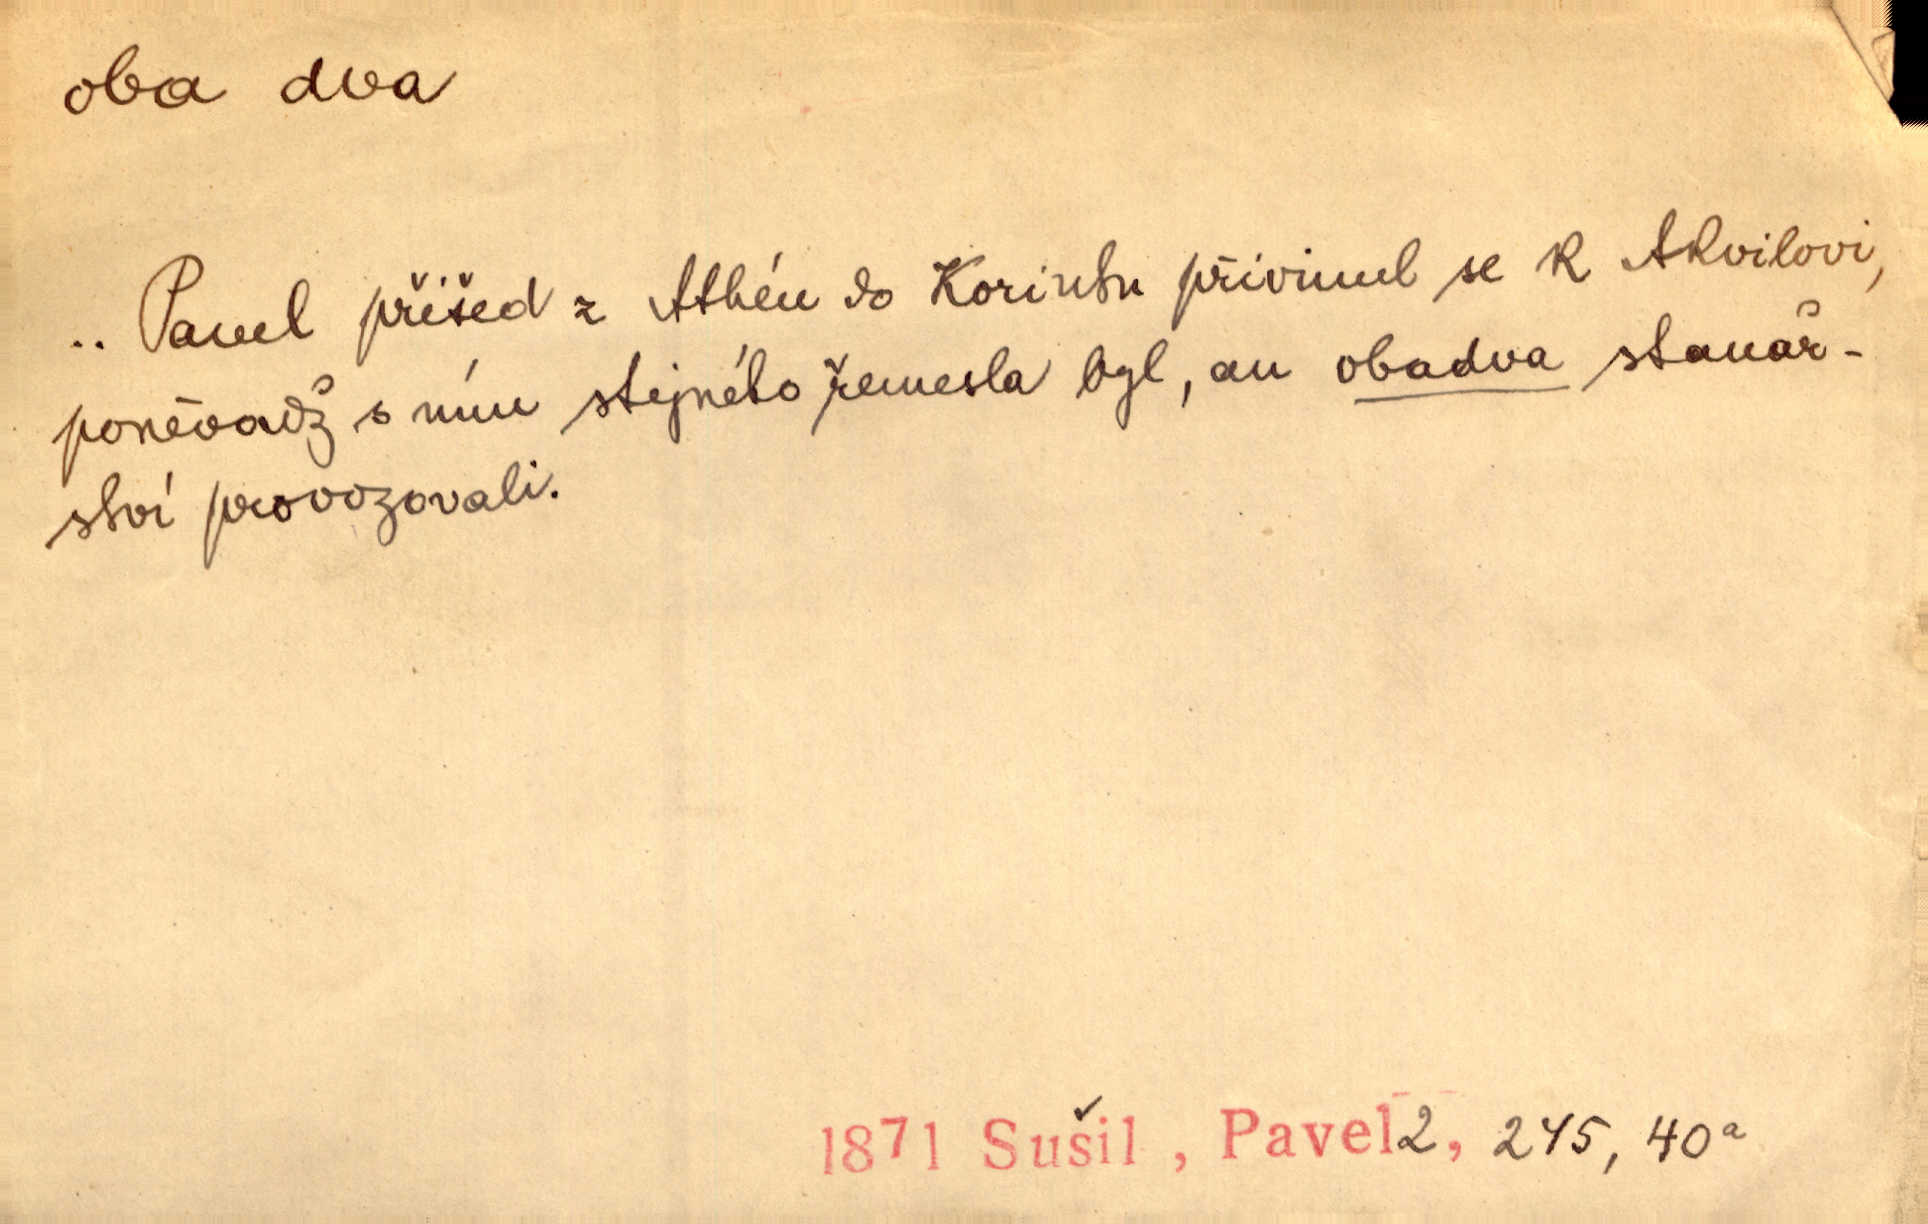 oba dva
.. Pavel přišed z Athén do Korinthu přivinul se k Akvilovi,
poněvadž s ním stejného řemesla byl, an obadva stanář-
ství provozovali.
1871 Sušil, Pavel 2, 245, 40a